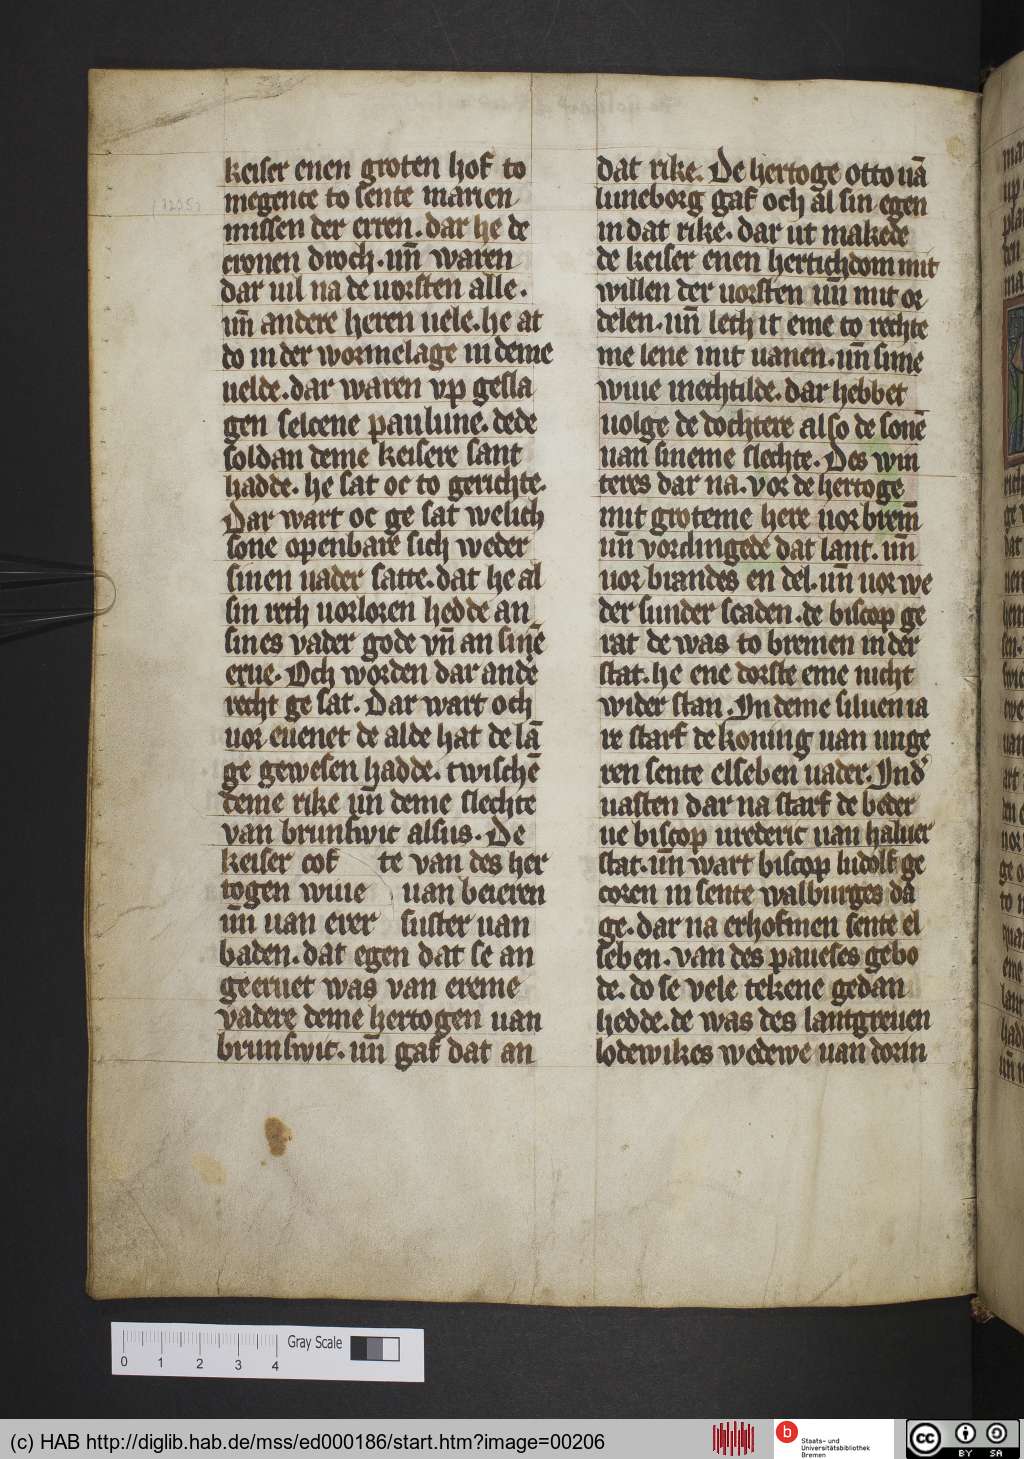 keiser enen groten hof to
megente to sente marien
missen der erren. dar he de
cronen droch. uñ waren
dar uil na de uorsten alle.
uñ andere heren uele. he at
do in der wormelage in deme
uelde. dar waren vp gesla
gen selcene paulune. dede
soldan deme keisere sant
hadde. he sat oc to gerichte.
Dar wart oc ge sat welich
sone openbare sich weder
sinen uader satte. dat he al
sin reth uorloren hedde an
sines vader gode vñ an sinē
erue. Och worden dar ande
recht ge sat. Dar wart och
uor euenet de alde hat de lā
ge gewesen hadde. twischē
deme rike uñ deme slechte
van brunswic alsus. De
keiser cof te van des her
togen wiue uan beieren
uñ uan erer suster uan
baden. dat egen dat se an
geeruet was van ereme
vadere deme hertogen uan
brunswic. uñ gaf dat an
dat rike. De hertoge otto uā
luneborg gaf och al sin egen
in dat rike. dar ut makede
de keiser enen hertichdom mit
willen der uorsten uñ mit or
delen. uñ lech it eme to rechte
me lene mit uanen. uñ sime
wiue mechtilde. dar hebbet
uolge de dochtere al so de sonē
uan sineme slechte. Des win
teres dar na. vor de hertoge
mit groteme here uor brem̄
uñ vordingede dat lant. uñ
uor brandes en del. uñ uor we
der sunder scaden. de biscop ge
rat de was to bremen in der
stat. he ene dorste eme nicht
wider stan. In deme siluen ia
re starf de koning uan unge
ren sente elseben uader. Ind'
uasten dar na starf de beder
ue biscop urederic uan haluer
stat. uñ wart biscop ludolf ge
coren in sente walburges da
ge. dar na erhofmen sente el
seben. van des paueses gebo
de. do se vele tekene gedan
hedde. de was des lantgreuen
lodewikes wedewe uan dorin
0 1 2 3 4
Gray Scale
(c) HAB http://diglib.hab.de/mss/ed000186/start.htm?image=00206
Staats- und
Universitätsbibliothek
Bremen
CC BY SA